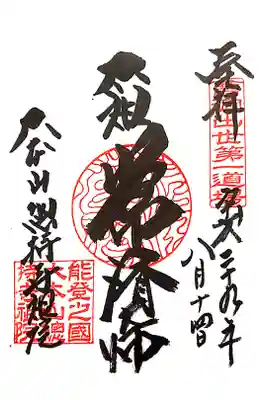 奉拝
出世第一道場
平成二十九年
八月十四日
太祖
常済大師
大本山總持寺祖院
能登之國
大本山總
持寺祖院